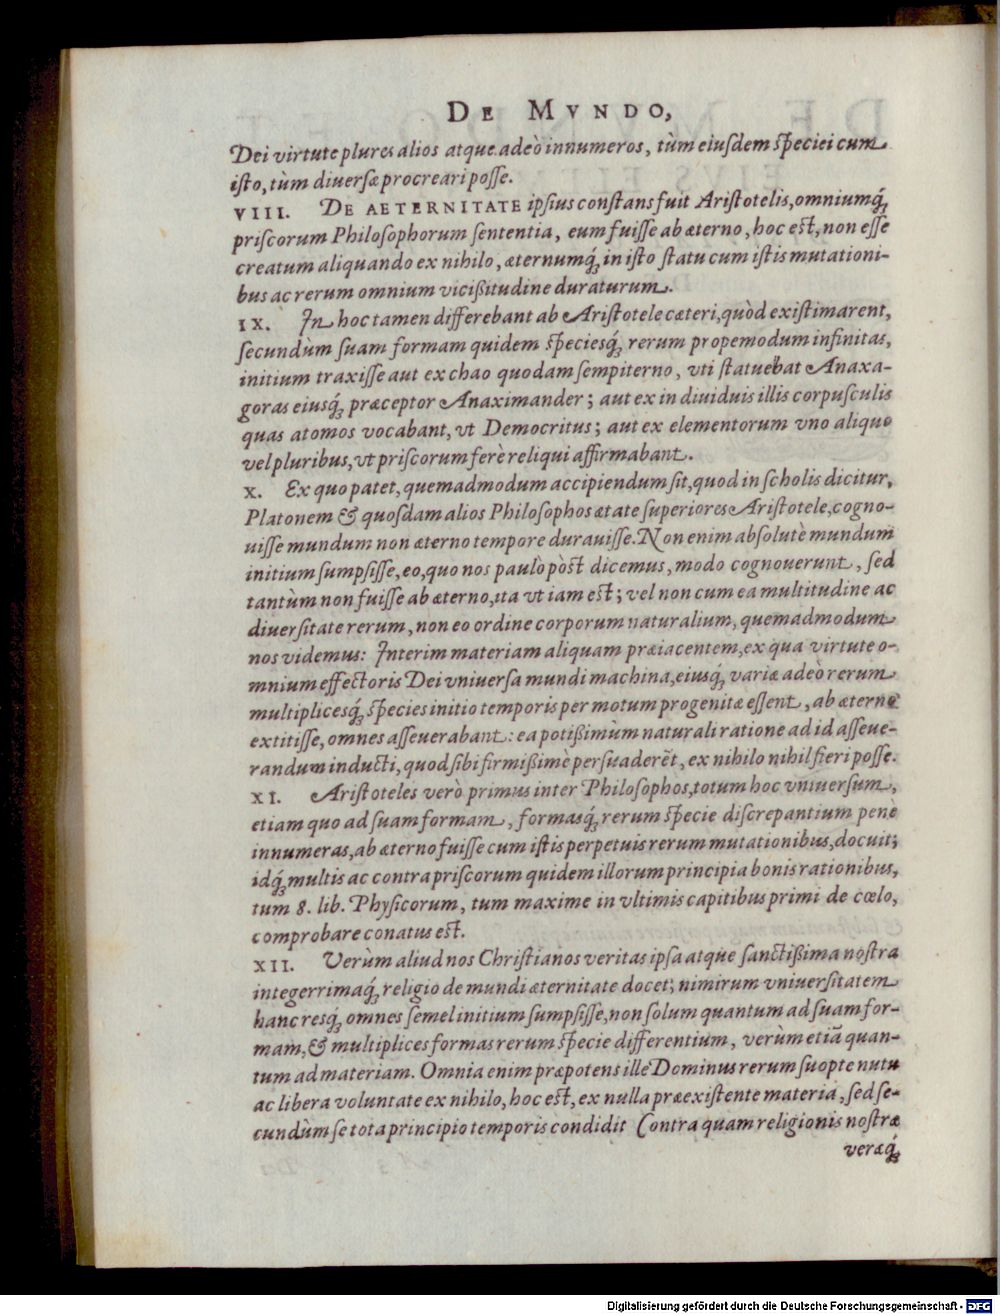 DE MVNDO,
Dei virtute plures alios atque adeò innumeros, tùm eiusdem speciei cum
isto, tùm diuersæ procreari posse.
VIII. DE AETERNITATE ipsius constans fuit Aristotelis, omniumq́;
priscorum Philosophorum sententia, eum fuisse ab æterno, hoc est, non esse
creatum aliquando ex nihilo, æternumq́; in isto statu cum istis mutationi-
bus ac rerum omnium vicißitudine duraturum.
IX. In hoc tamen differebant ab Aristotele cæteri, quòd existimarent,
secundùm suam formam quidem speciesq́; rerum propemodum infinitas,
initium traxisse aut ex chao quodam sempiterno, vti statuebat Anaxa-
goras eiusq́; præceptor Anaximander; aut ex indiuiduis illis corpusculis
quas atomos vocabant, vt Democritus; aut ex elementorum vno aliquo
vel pluribus, vt priscorum ferè reliqui affirmabant.
X. Ex quo patet, quemadmodum accipiendum sit, quod in scholis dicitur,
Platonem & quosdam alios Philosophos ætate superiores Aristotele, cogno-
uisse mundum non æterno tempore durauisse. Non enim absolutè mundum
initium sumpsisse, eo, quo nos paulò pòst dicemus, modo cognouerunt, sed
tantùm non fuisse ab æterno, ita vt iam est; vel non cum ea multitudine ac
diuersitate rerum, non eo ordine corporum naturalium, quemadmodum
nos videmus: Interim materiam aliquam præiacentem, ex qua virtute o-
mnium effectoris Dei vniuersa mundi machina, eiusq́; variæ adeò rerum
multiplicesq́; species initio temporis per motum progenitæ essent, ab æterno
extitisse, omnes asseuerabant: ea potißimùm naturali ratione ad id asseue-
randum inducti, quod sibi firmißimè persuaderēt, ex nihilo nihil fieri posse.
XI. Aristoteles verò primus inter Philosophos, totum hoc vniuersum,
etiam quo ad suam formam, formasq́; rerum specie discrepantium penè
innumeras, ab æterno fuisse cum istis perpetuis rerum mutationibus, docuit;
idq́; multis ac contra priscorum quidem illorum principia bonis rationibus,
tum 8. lib. Physicorum, tum maxime in vltimis capitibus primi de cœlo,
comprobare conatus est.
XII. Verùm aliud nos Christianos veritas ipsa atque sanctißima nostra
integerrimaq́; religio de mundi æternitate docet; nimirum vniuersitatem
hanc resq́; omnes semel initium sumpsisse, non solum quantum ad suam for-
mam, & multiplices formas rerum specie differentium, verùm etiā quan-
tum ad materiam. Omnia enim præpotens ille Dominus rerum suopte nutu
ac libera voluntate ex nihilo, hoc est, ex nulla præexistente materia, sed se-
cundùm se tota principio temporis condidit Contra quam religionis nostræ
veræq́;
Digitalisierung gefördert durch die Deutsche Forschungsgemeinschaft - DFG